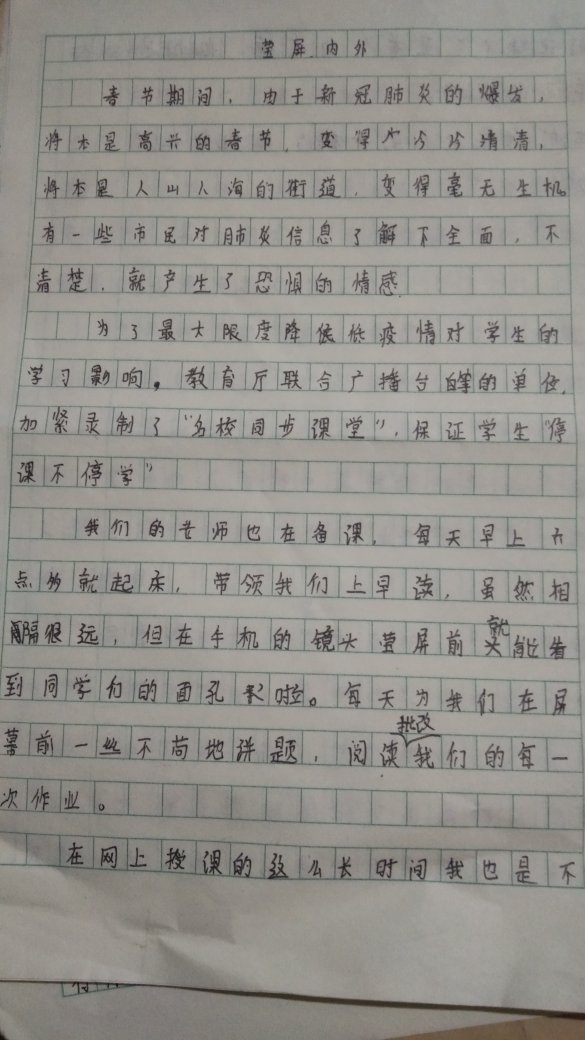 莹屏内外
春节期间，由于新冠肺炎的爆发，
将本是高兴的春节，变得冷冷清清，
将本是人山人海的街道，变得毫无生机
有一些市民对肺炎信息了解不全面，不
清楚，就产生了恐惧的情感
为了最大限度降低疫情对学生的
学习影响，教育厅联合广播台等的单位，
加紧录制了“名校同步课堂”，保证学生“停
课不停学”
我们的老师也在备课，每天早上六
点多就起床，带领我们上早读，虽然相
隔很远，但在手机的镜头莹屏前就能看
到同学们的面孔啦。每天为我们在屏
幕前一丝不苟地讲题，阅读批改我们的每一
次作业。
在网上授课的这么长时间我也是不